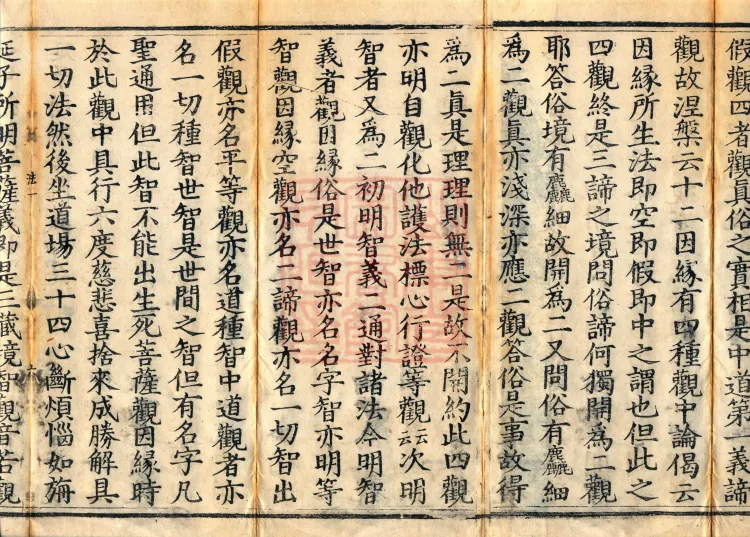 假觀四者觀真俗之實相是中道第一義諦
觀故涅槃云十二因緣有四種觀中論偈云
因緣所生法即空即假即中之謂也但此之
四觀終是三諦之境問俗諦何獨開為二觀
耶答俗境有麤細故開為二又問俗有麤細
為二觀真亦淺深亦應二觀答俗是事故得
為二真是理理則無二是故不開約此四觀
亦明自觀化他護法標心行證等觀云云次明
智者又為二初明智義二通對諸法今明智
義者觀因緣俗是世智亦名名字智亦明等
智觀因緣空觀亦名二諦觀亦名一切智出
假觀亦名平等觀亦名道種智中道觀者亦
名一切種智世智是世間之智但有名字凡
聖通用但此智不能出生死菩薩觀因緣時
於此觀中具行六度慈悲喜捨來成勝解具
一切法然後坐道場三十四心斷煩惱如旃
法一 六
延子所明菩薩義即是三藏境智觀音若觀